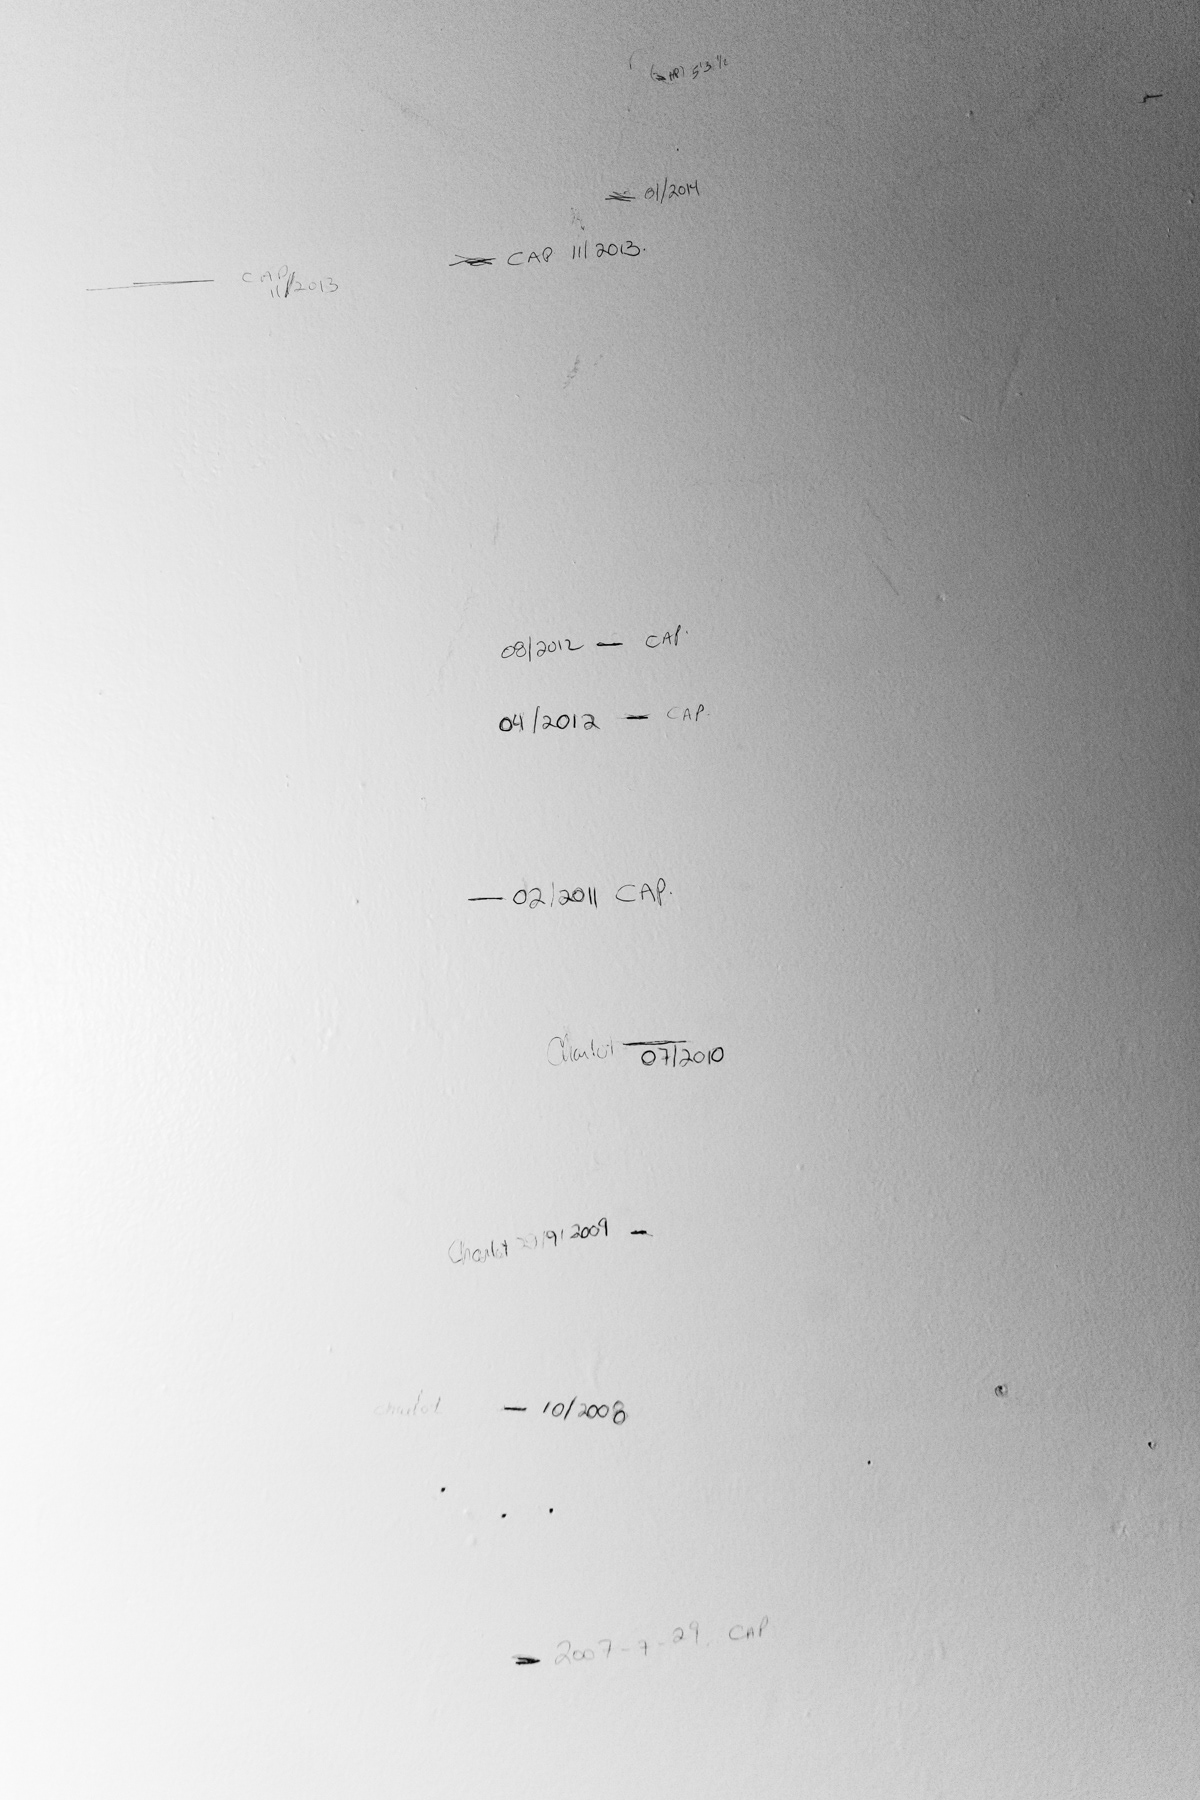 (CAP) 5'3 1/2
01/2014
CAP 11/2013.
CAP
11/2013
08/2012 — CAP.
04/2012 — CAP.
— 02/2011 CAP.
Charlot 07/2010
Charlot /9/2009 —
Charlot — 10/2008
2007-7-29. CAP